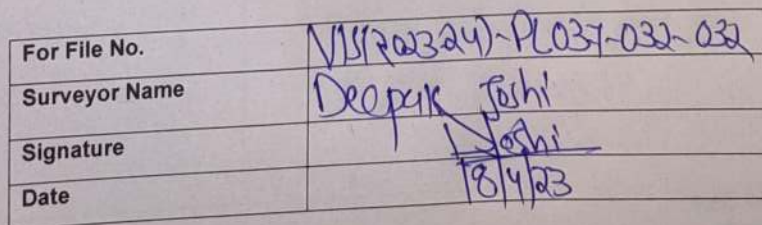 For File No. VIS(2023-24)-PL037-032-032
Surveyor Name Deepak Joshi
Signature Joshi
Date 18/4/23